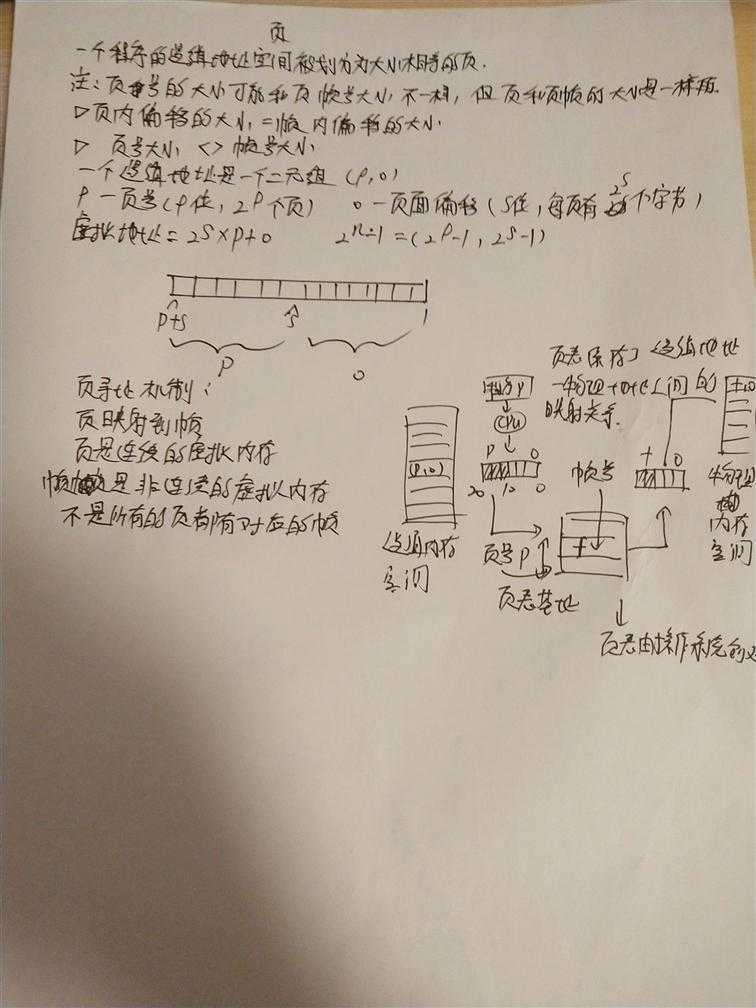 页
一个程序的逻辑地址空间被划分为大小相等的页.
注:页号的大小可能和页帧号大小不一样,但页和页帧的大小是一样
▷页内偏移的大小=帧内偏移的大小
▷ 页号大小 <> 帧号大小
一个逻辑地址是一个二元组 (P,O)
P — 页号(P位, 2^P个页) O — 页面偏移 (S位, 每页有 2^S 个字节)
虚拟地址 = 2^S × P + O 2^n-1 = (2^P-1, 2^S-1)
P+S S 1
P O
页寻址机制:
页映射到帧
页是连续的虚拟内存
帧是非连续的虚拟内存
不是所有的页都有对应的帧
页表保存了逻辑地址
—物理地址之间的
映射关系.
程序P
CPU
P O
20 10 0
(P,O)
逻辑内存
空间
页号P
页表基址
帧号
f
f O
物理
内存
空间
页表由操作系统